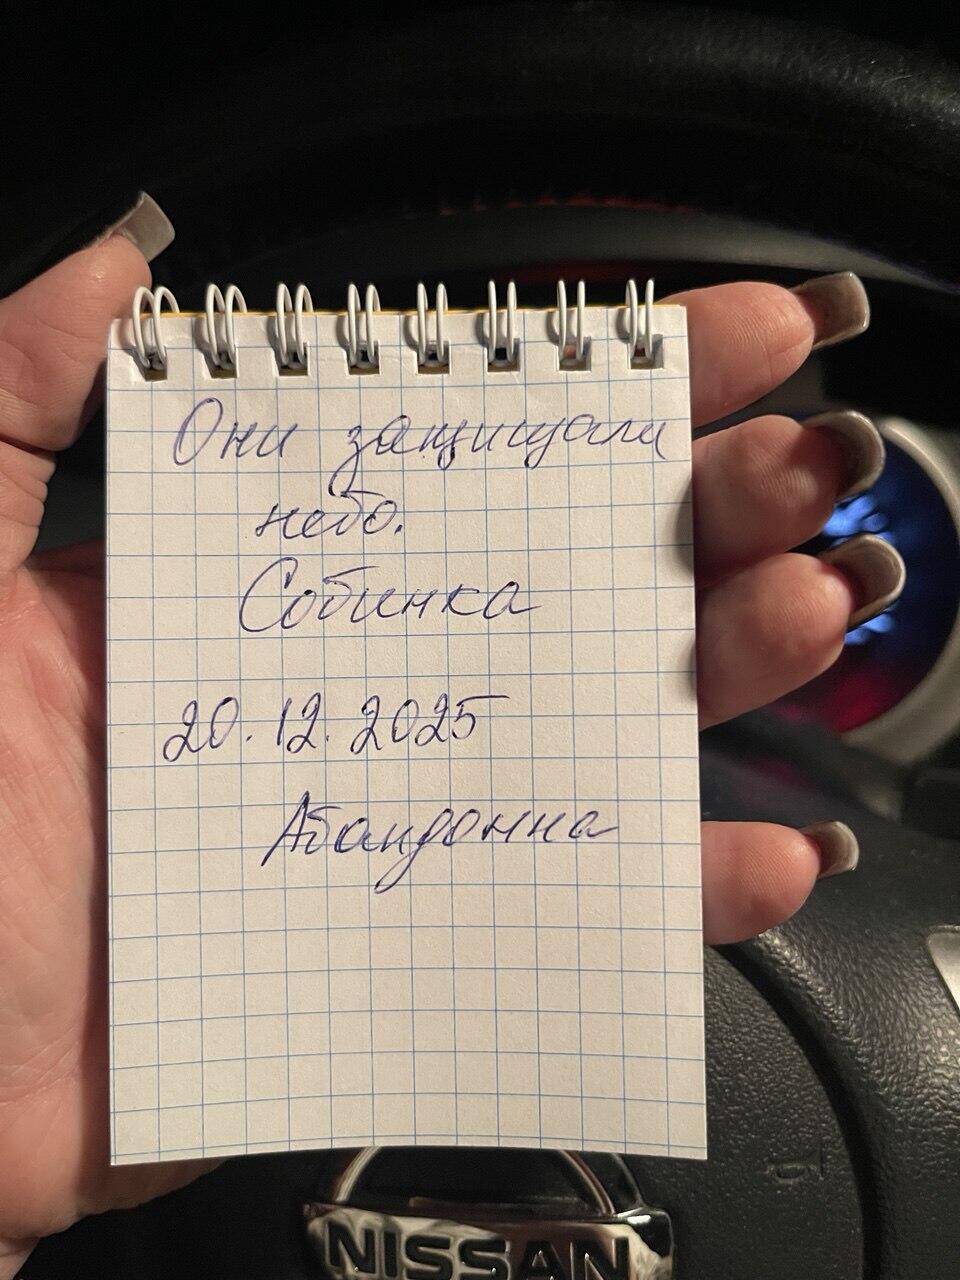 Они защищали
небо.
Собинка
20.12.2025
Абандонна
NISSAN